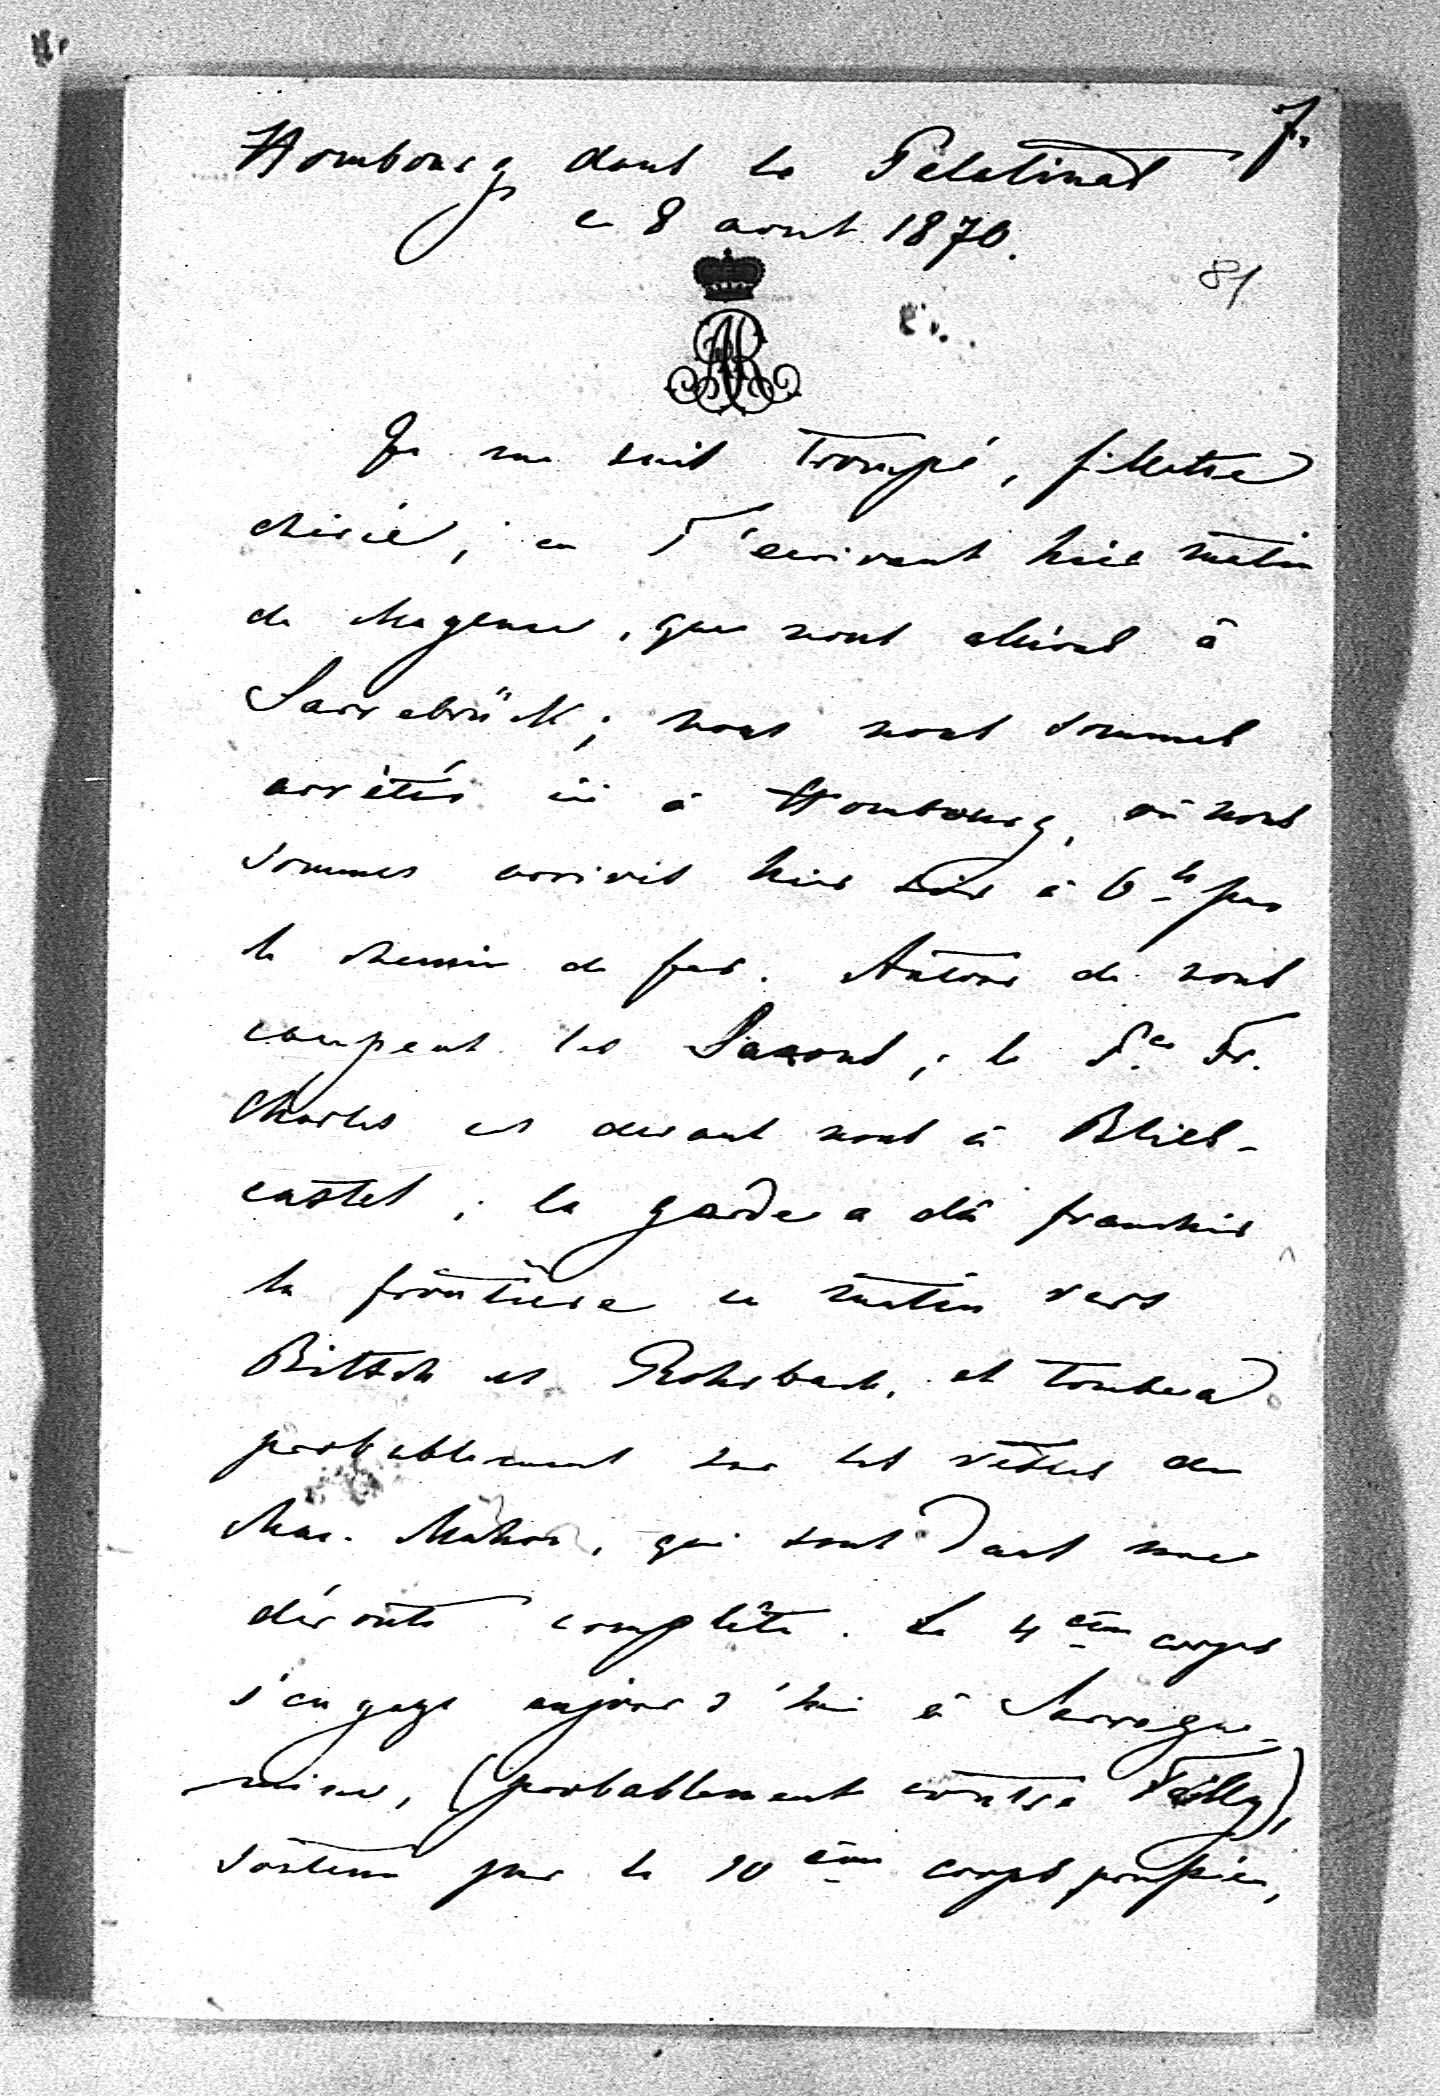 7.
Hombourg dans le Palatinat
ce 8 aout 1870.
81
AR
Je me suis trompé, fillette
chérie, en T'écrivant hier matin
de Mayence, que nous allions à
Sarrebrück; nous nous sommes
arrêtés ici à Hombourg, où nous
sommes arrivés hier soir à 6h par
le chemin de fer. Autour de nous
campent les Saxons; le Pce Fr.
Charles est devant nous à Blies-
castel; la garde a dû franchir
la frontière ce matin vers
Bittsch et Rohrbach, et tombera
probablement sur les restes de
Mac-Mahon, qui sont dans une
déroute complète. Le 4ème corps
s'engage aujourd'hui à Sarregue-
mines, (probablement contre Failly),
soutenu par le 10ème corps prussien,